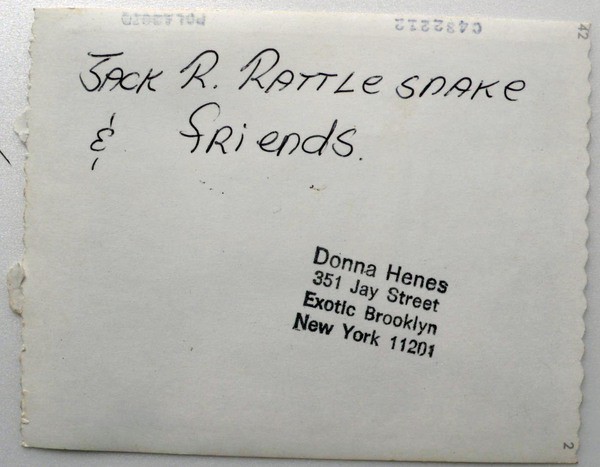 POLAROID
C482212
42
JACK R. RATTLE SNAKE
& friends.
Donna Henes
351 Jay Street
Exotic Brooklyn
New York 11201
2